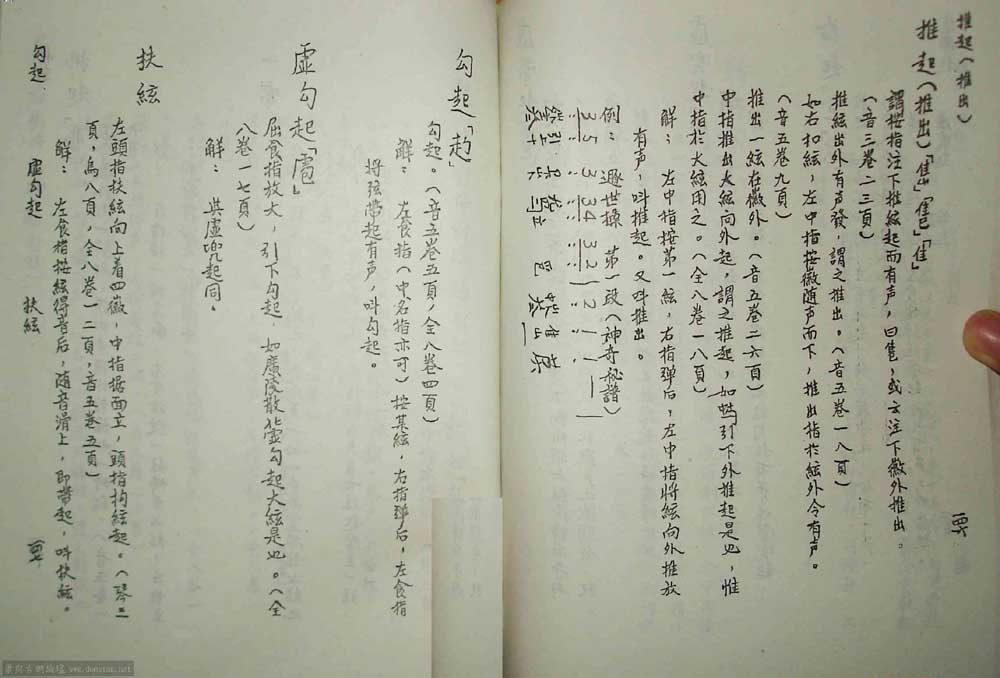 推起（推出）
推起（推出）「」「」「」
謂按指注下推絃起而有声，曰隻，或云注下徽外推出。
（音三卷二三頁）
推絃出外有声發，謂之推出。（音五卷一八頁）
如右扣絃，左中指按徽随声而下，推出指於絃外令有声。
（音五卷九頁）
推出一絃在徽外。（音五卷二六頁）
中指推出大絃向外起，謂之推起，如引下外推起是也，惟
中指於大絃用之。（全八卷一八頁）
解：左中指按第一絃，右指弹后，左中指將絃向外推放
有声，叫推起。又叫推出。
例：遯世操 第一段（神奇秘譜）
35 3 34 32 1 2 1 1
勾起「」
勾起。（音五卷五頁，全八卷四頁）
解：左食指（中名指亦可）按某絃，右指弹后，左食指
将弦带起有声，叫勾起。
虚勾起「」
屈食指放大，引下勾起，如廣陵散虚勾起大絃是也。（全
八卷一七頁）
解：與虚兜起同。
扶絃
左頭指扶絃向上着四徽，中指据面立，頭指拘絃起。（琴三
頁，烏八頁，全八卷一二頁，音五卷五頁）
解：左食指按絃得音后，随音滑上，即带起，叫扶絃。
勾起 虚勾起 扶絃
www.donewne.net